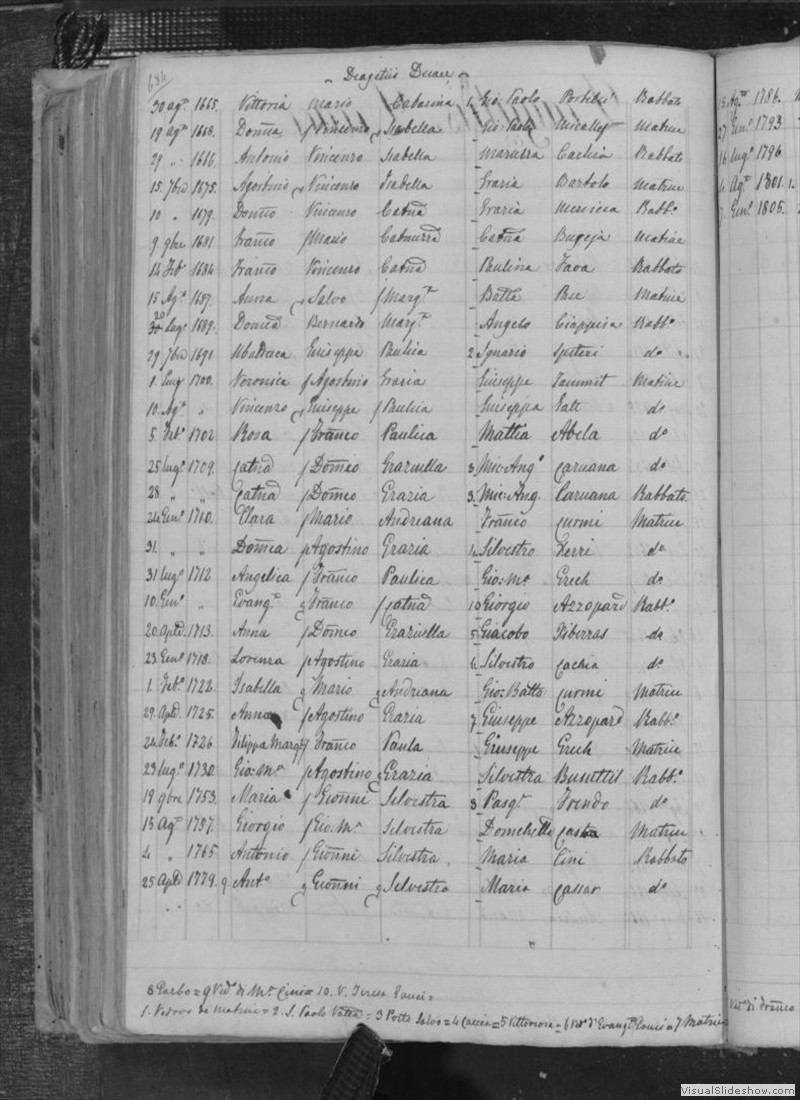 686
Dragetiis Ducae
30 ag.º 1665. Vittoria Mario Catarina 1. Gio: Paolo Portelli Rabbato
19 ag.º 1668. Domca Vincenzo Isabella Gio: Paolo Micallef Matrice
29 " 1666. Antonio Vincenzo Isabella Maruzza Cachia Rabbato
15. 7bre 1675. Agostino Vincenzo Isabella Grazia Bartolo Matrice
10 " 1679. Domco Vincenzo Catña Grazia Rabb.º
9 9bre 1681 Franco Mario Catña Bugeja Matrice
14 Feb.º 1684 Franco Vincenzo Catña Paulina Fava Rabbato
15 Ag.º 1687. Anna Salvo Marg.ta Batta Matrice
20 30 Lug.º 1689. Domca Bernardo Marg.ta Angelo Ciappara Rabb.º
29 7bre 1691. Ubaldesca Giuseppe Paulica 2. Ignazio Spiteri d.º
1. 1700. Veronica Agostino Grazia Giuseppe Zammit Matrice
10. Ag.º " Vincenzo Giuseppe Paulica Giuseppa d.º
5 Feb.º 1702 Rosa Franco Paulica Mattia Abela d.º
25 lug.º 1709. Catña Domco Graziulla 3. Mic: Ang.º Caruana d.º
28 " " Catña Domco Grazia 3. Mic: Ang. Caruana Rabbato
24 Gen.º 1710. Clara Mario Andreana Franco Cuomi Matrice
31. " " Domca Agostino Grazia 4. Silvestro Zerri d.º
31 lug.º 1712 Angelica Franco Paulica Gio: M.ª Grech d.º
10. Gen.º " Evang.ta Franco Catña 10 Giorgio Azzopard Rabb.º
20. Aple 1713. Anna Domco Graziulla 5. Giacobo Xiberras d.º
23. Gen.º 1718. Lorenza Agostino Grazia 6. Silvestro Cachia d.º
1. Feb.º 1722. Isabella Mario Andriana Gio: Batta Cuomi Matrice
29. Aple 1725. Anna Agostino Grazia 7. Giuseppe Azzopard Rabb.º
24 Feb.º 1726 Filippa Marg.ta Franco Paula Giuseppe Grech Matrice
23 lug.º 1730. Gio: M.ª Agostino Grazia Silvestra Busuttil Rabb.º
19 9bre 1753. Maria Gionni Silvestra 8 Pasq.e Trendo d.º
15 Ag.º 1757. Giorgio Gio: M.ª Silvestra Matrice
4 " 1765 Antonio Gionni Silvestra Maria Cini Rabbato
25 Aple 1779. 9 Ant.º Gionni Silvestra Maria Cassar d.º
8 Garbo = 9 Ved.º di M.ª Cini = 10. V. Teresa
1. Vedovo da Matrice = 2. S. Paolo Valta = 3 Porto Salvo = 4 = 5 Vittoriosa = 6 Ved.ª d'Evang.ta = 7 Matrice
13 Ag.º 1786.
27. Gen.º 1793
16 lug.º 1796
Ag.º 1801. 1.
7. Gen.º 1805.
Ved.ª di Franco
VisualSlideshow.com